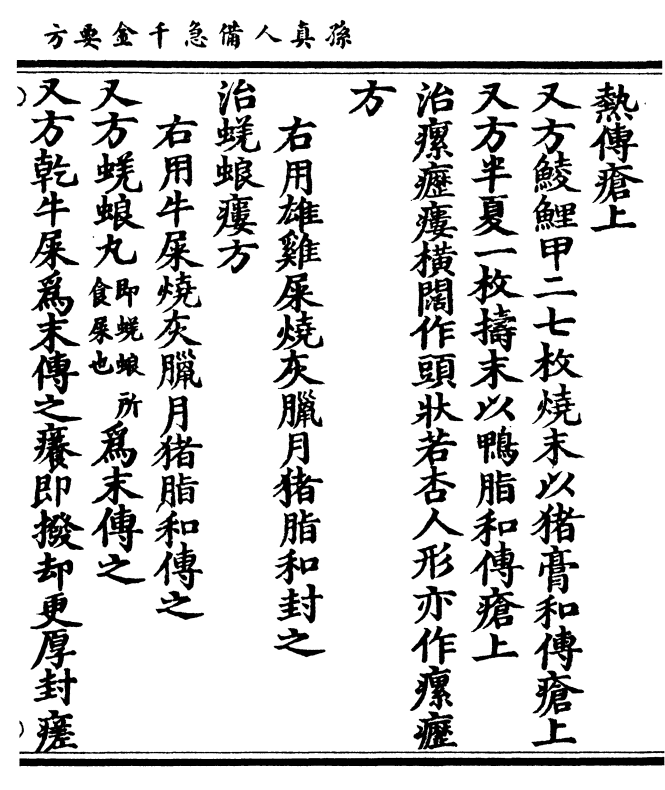 孫真人備急千金要方
熱傅瘡上
又方鯪鯉甲二七枚燒末以猪膏和傅瘡上
又方半夏一枚擣末以鴨脂和傅瘡上
治瘰癧瘻橫闊作頭狀若杏人形亦作瘰癧
方
右用雄雞屎燒灰臘月猪脂和封之
治蜣蜋瘻方
右用牛屎燒灰臘月猪脂和傅之
又方蜣蜋丸即蜣蜋所食屎也爲末傅之
又方乾牛屎爲末傅之癢即撥却更厚封瘥